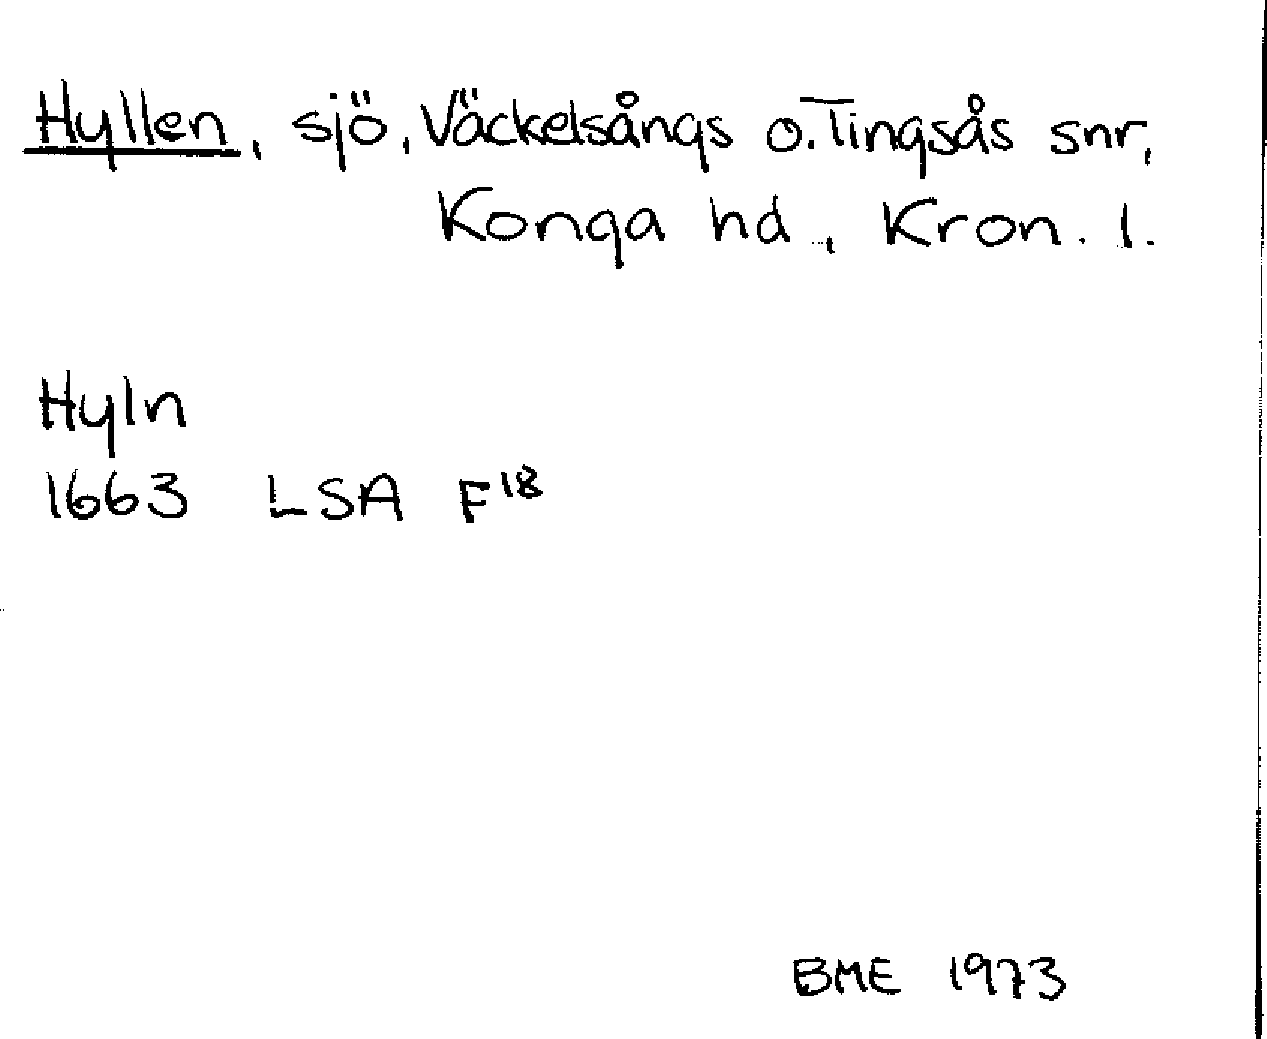 Hyllen, sjö, Väckelsångs o. Tingsås snr,
Konga hd., Kron. l.
Hyln
1663 LSA F18
BME 1973